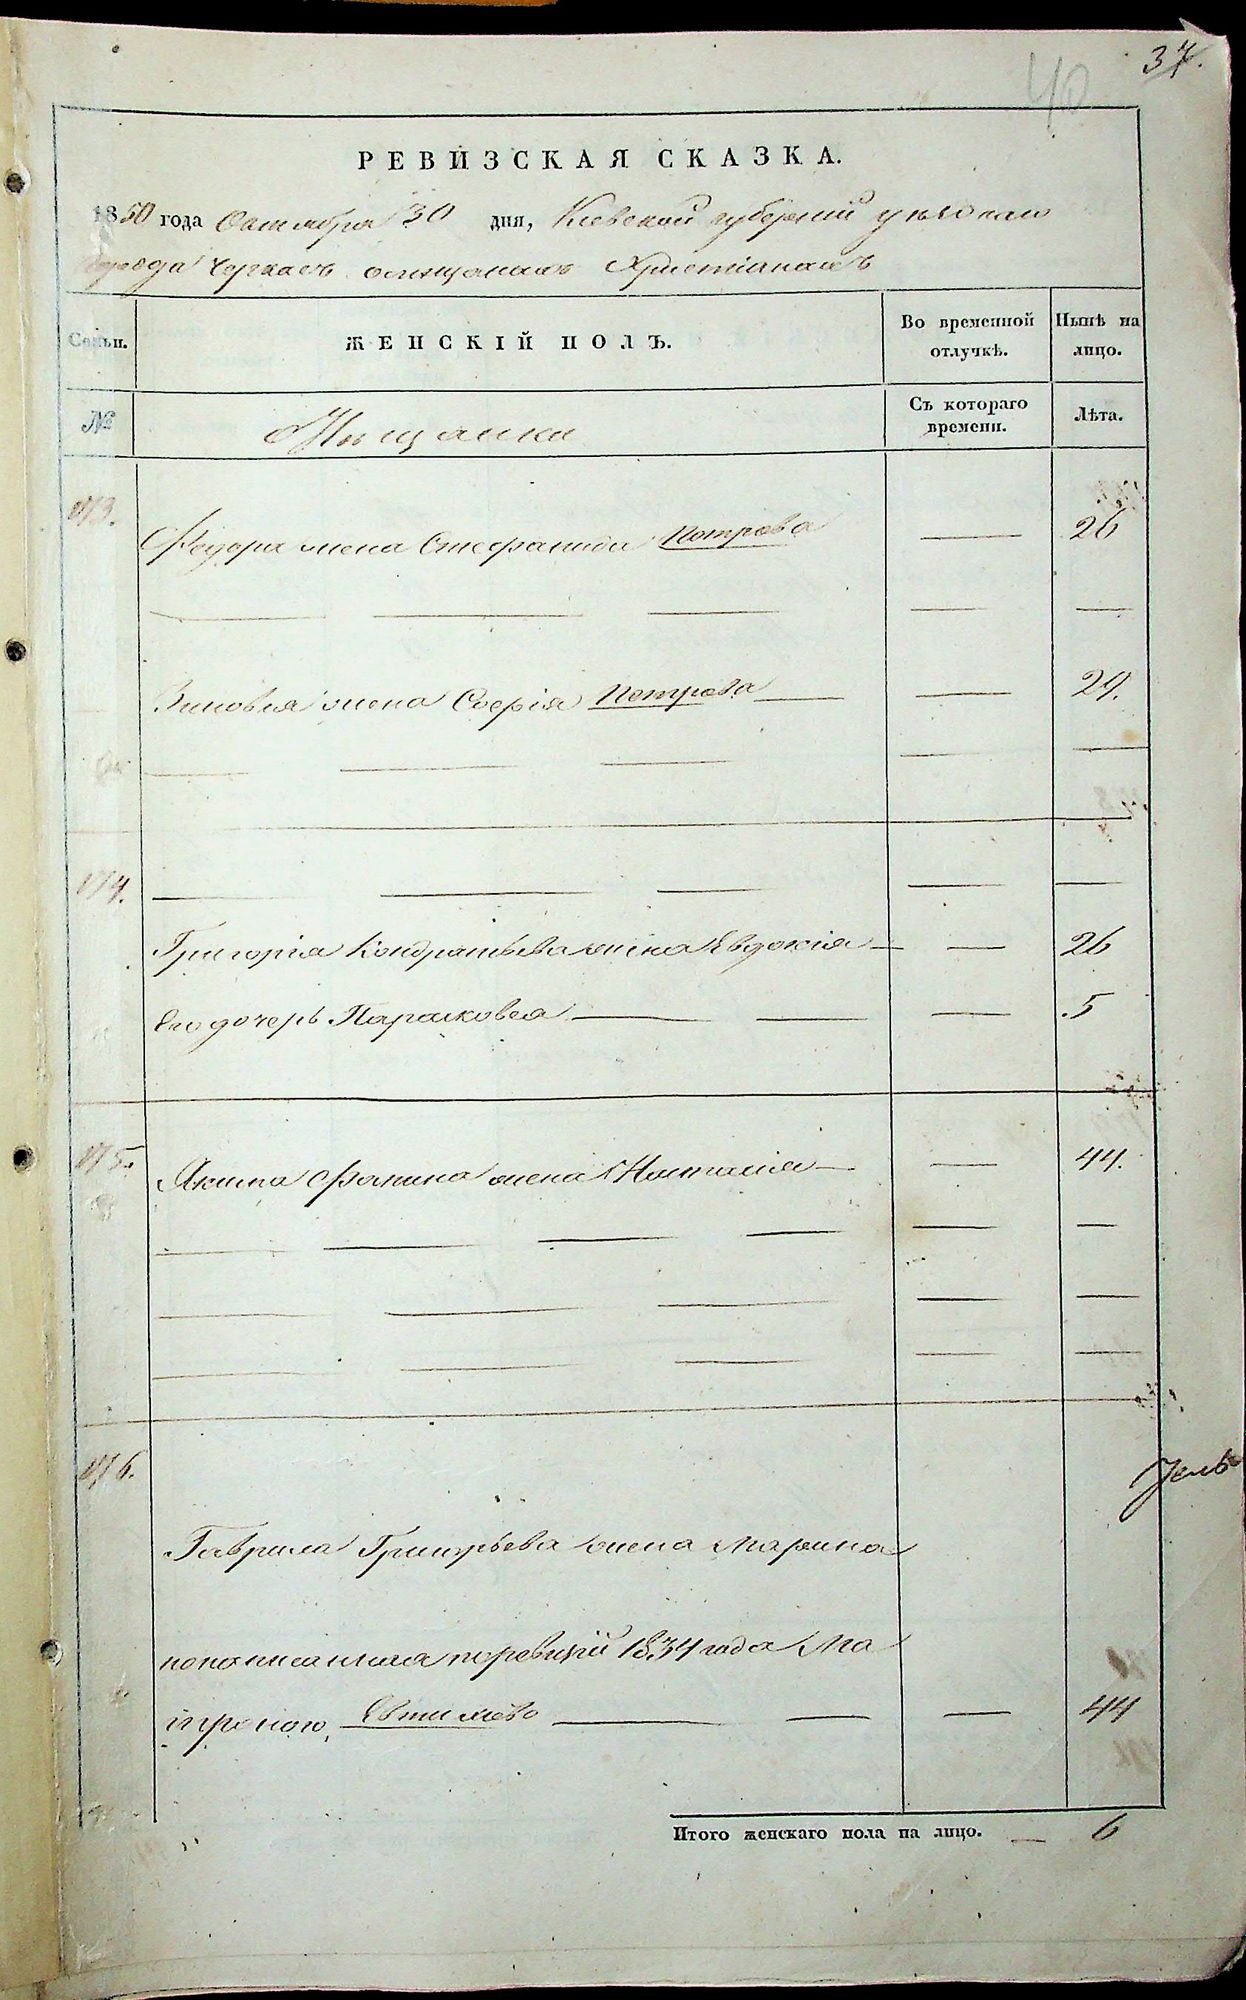 37.
40
РЕВИЗСКАЯ СКАЗКА.
1850 года Октября 30 дня, Кіевской губерніи уезднаго
города Черкасъ о мещанахъ Христіанахъ
Семьи. ЖЕНСКІЙ ПОЛЪ. Во временной отлучкѣ. Нынѣ на лицо.
№ Мещанки Съ котораго времени. Лѣта.
173.
Федора жена Стефанида Петрова — 26
Зиновея жена Софія Петрова — — 29.
174.
Григорія Кондратьева жена Евдокія — — 26
Его дочерь Парасковея — — — 5
175. Якима Фомина жена Наталія — — 44.
176.
Гаврила Григорьева жена Марина
по ревизіи 1834 года Ма
трôною, Евтиміево — — — 44
Итого женскаго пола на лицо. — 6